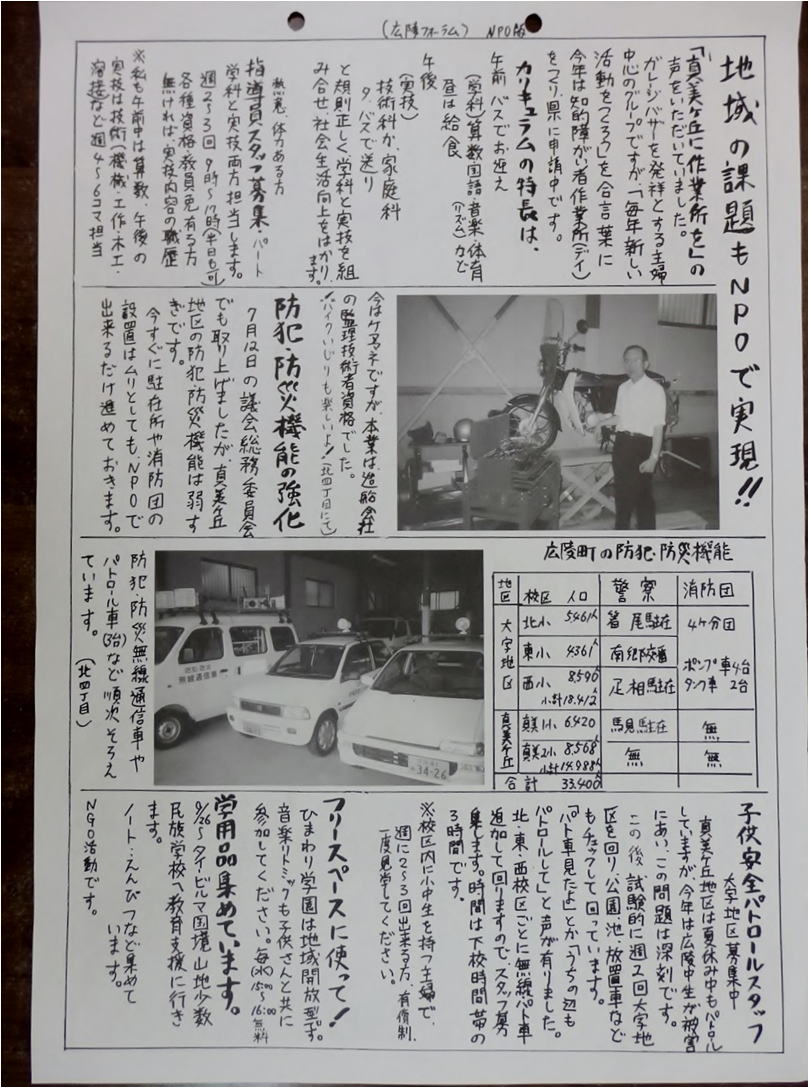 (広陵フォーラム) NPO版
地域の課題もNPOで実現!!
「真美ヶ丘に作業所を」の
声をいただいていました。
ガレージバザーを発祥とする主婦
中心のグループですが、「毎年新しい
活動をつくろう」を合言葉に
今年は知的障がい者作業所(デイ)
をつくり県に申請中です。
カリキュラムの特長は、
午前 バスでお迎え
(学科)算数国語・音楽・体育
(リズム)など
昼は給食
午後
(実技)
技術科か、家庭科
夕、バスで送り
と規則正しく学科と実技を組
み合せ、社会生活向上をはかり
ます。
熱意、体力ある方
指導員スタッフ募集 パート
学科と実技両方担当します。
週2〜3回 9時〜17時(半日も可)
各種資格、教員免有る方
無ければ、実技内容の職歴
※私も午前中は算数、午後の
実技は技術(機械・工作・木工・
溶接)など週4〜6コマ担当
今はケアマネですが、本業は造船会社
の監理技術者資格でした。
!バイクいじりも楽しいよ!(北四丁目にて)
防犯・防災機能の強化
7月12日の議会総務委員会
でも取り上げましたが、真美ヶ丘
地区の防犯・防災機能は弱す
ぎです。
今すぐに駐在所や消防団の
設置はムリとしても、NPOで
出来るだけ進めておきます。
広陵町の防犯・防災機能
地区 校区 人口 警察 消防団
大字地区 北小 5461人 箸尾駐在 4ヶ分団
東小 4361人 南郷交番 ポンプ車4台
西小 8,590人 疋相駐在 タンク車2台
小計18.412人
真美ヶ丘 真美1小 6,420 馬見駐在 無
真美2小 8,568人 無 無
小計14.988人
合計 33.400人
防犯・防災
無線通信車
34-26
防犯・防災無線通信車や
パトロール車(3台)など順次そろえ
ています。
(北四丁目)
子供安全パトロールスタッフ
大字地区募集中
真美ヶ丘地区は夏休み中もパトロール
していますが、今年は広陵中生が被害
にあい、この問題は深刻です。
この後、試験的に週2回大字地
区を回り、公園、池、放置車など
もチェックして回っています。
「パト車見たよ」とか「うちの辺も
パトロールして」と声が有りました。
北・東・西校区ごとに無線パト車
追加して回りますので、スタッフ募
集します。時間は下校時間帯の
3時間です。
※校区内に小中生を持つ主婦で、
週に2〜3回出来る方、有償制、
一度見学してください。
フリースペースに使って!
ひまわり学園は地域開放型です。
音楽リトミックも子供さんと共に
参加してください。毎(水)15:00〜16:00無料
学用品集めています。
9/26〜タイビルマ国境山地少数
民族学校へ教育支援に行き
ます。
ノート・えんぴつなど集めて
います。
NGO活動です。